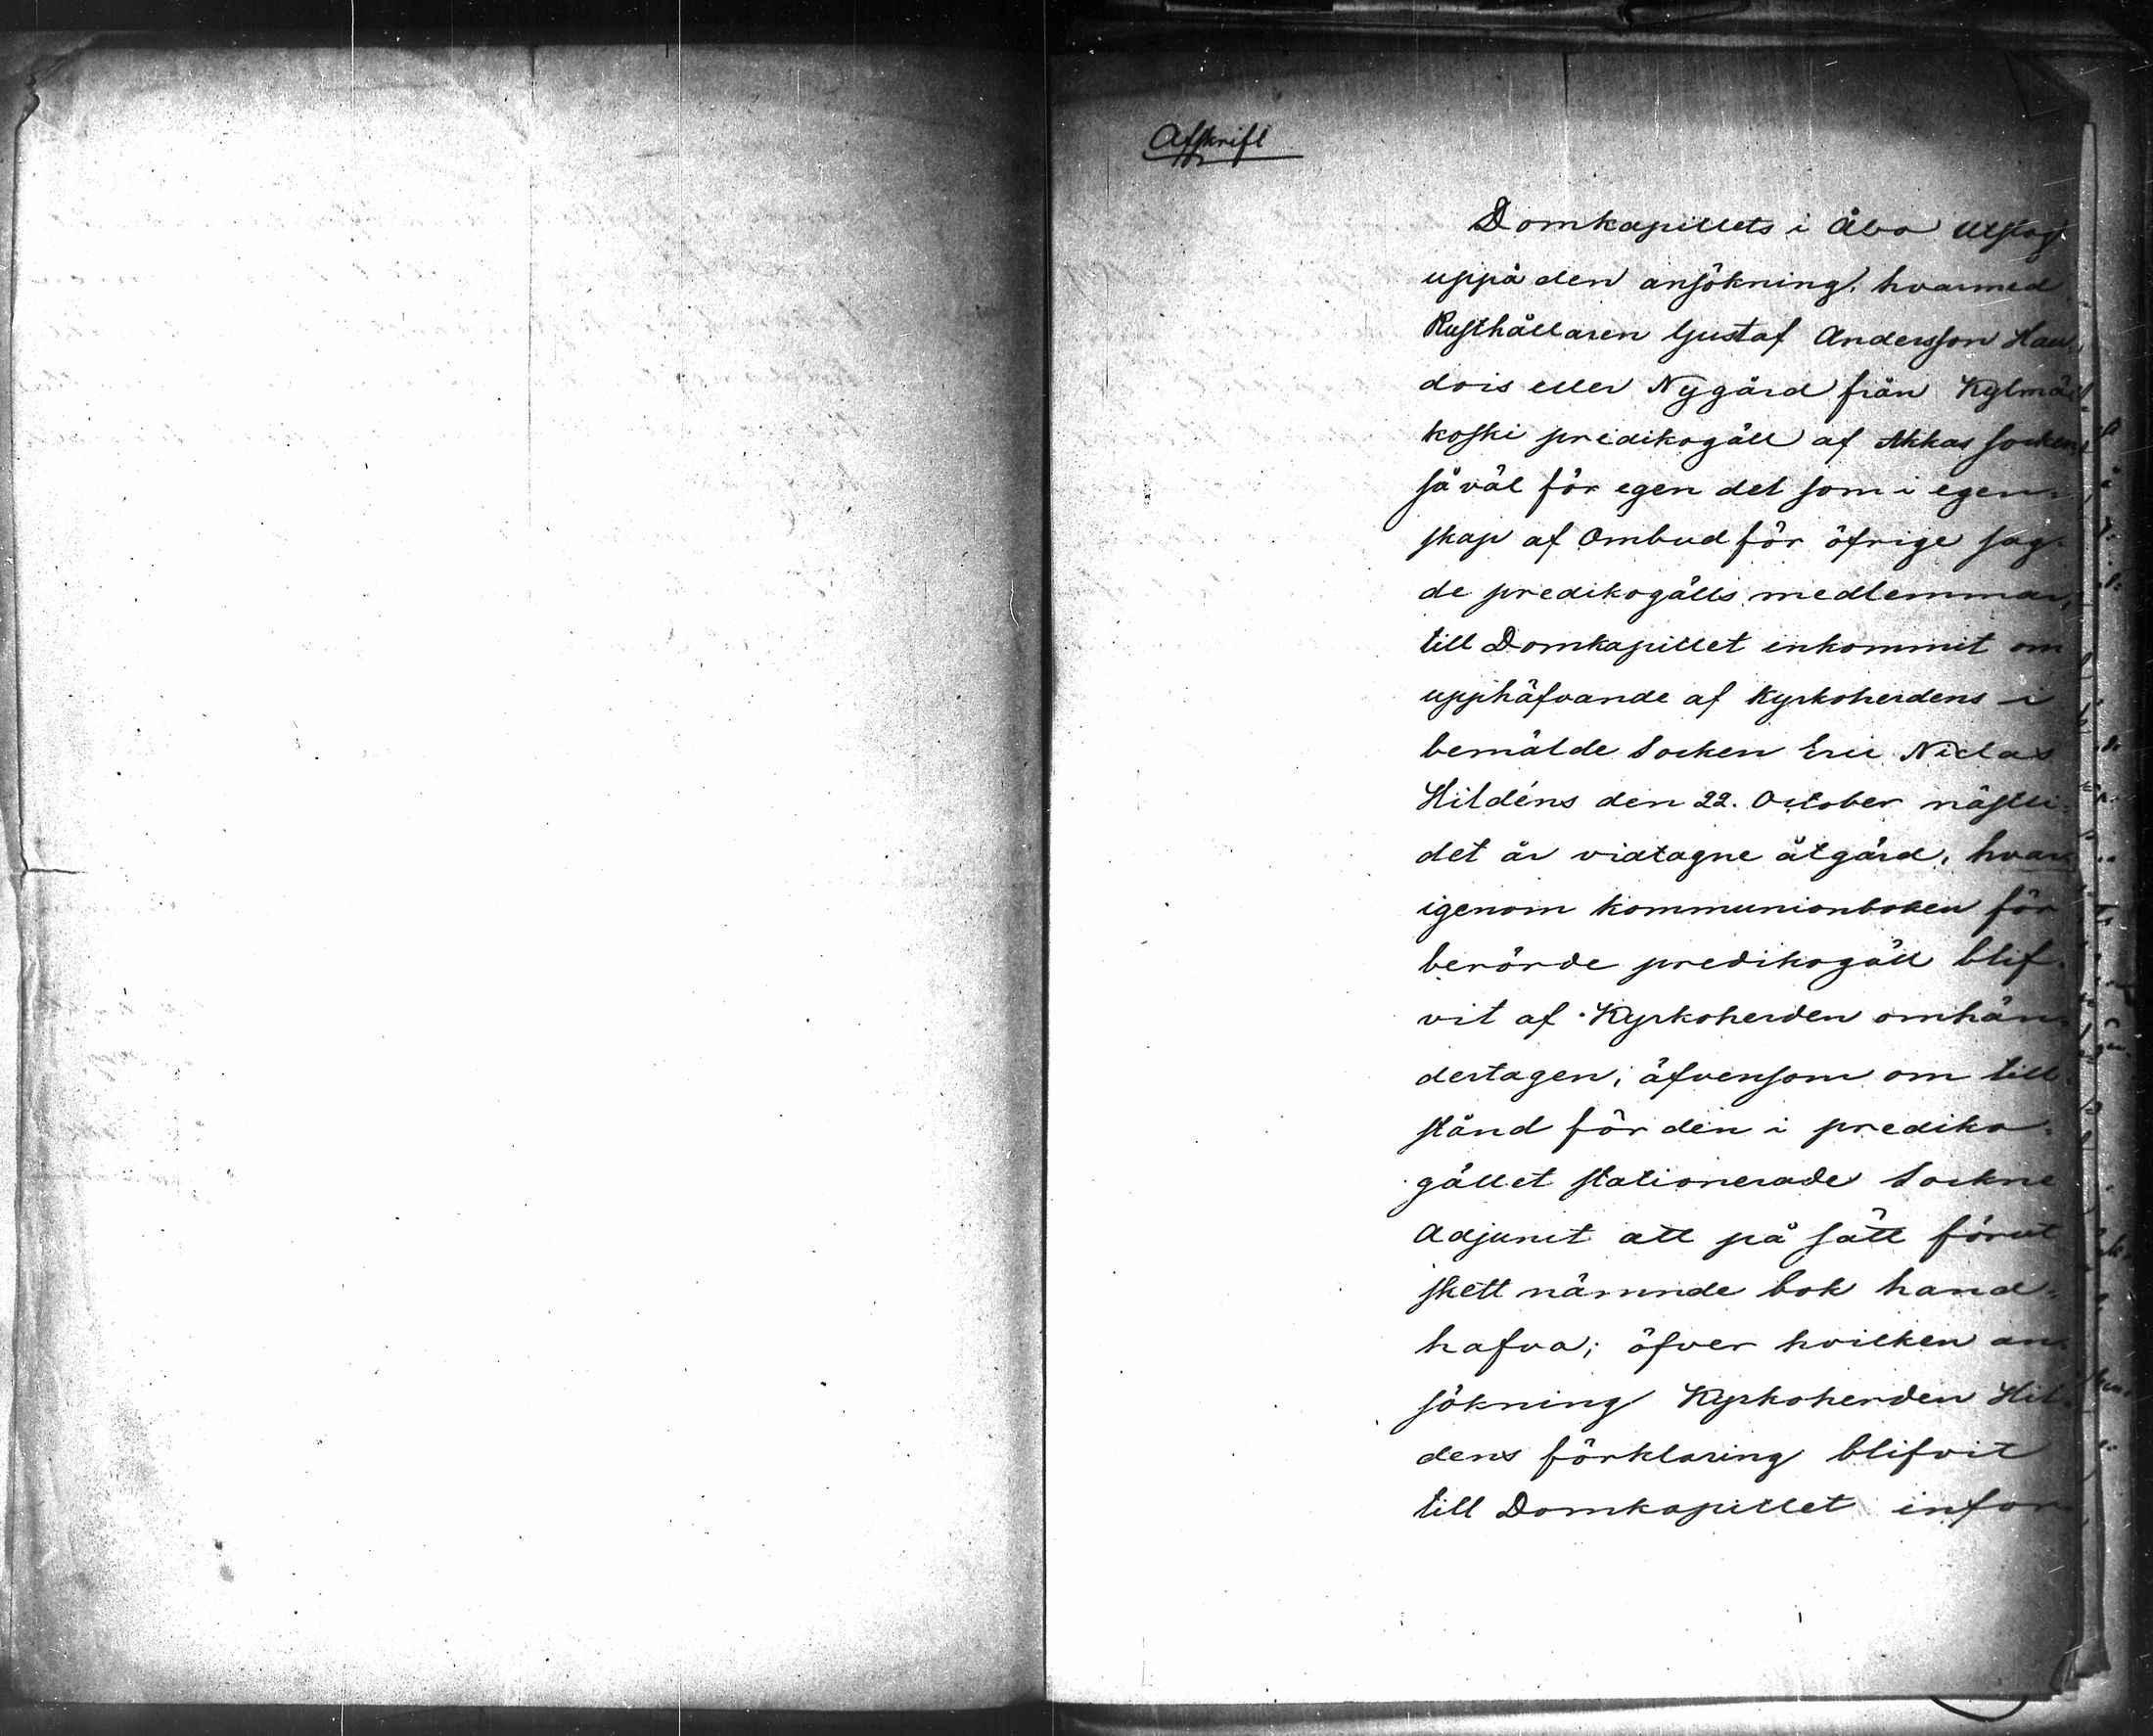 Afskrift
Domkapitlets i Åbo Utslag
uppå den ansökning, hvarmed
Rusthållaren Gustaf Andersson Hau-
dois eller Nygård från Kylmä-
koski predikogäll af Akkas socken,
så väl för egen del som i egen-
skap af Ombud för öfrige sag-
de predikogälls medlemmar,
till Domkapitlet inkommit om
upphäfvande af Kyrkoherdens i
bemälde Socken Eric Niclas
Hildéns den 22. October nästli-
det år vidtagne åtgärd, hvar-
igenom kommunionboken för
berörde predikogäll blif-
vit af Kyrkoherden omhän-
dertagen; äfvensom om till-
stånd för den i prediko-
gället stationerade Sockne
Adjunct att på sätt förut
skett nämnde bok hand-
hafva; öfver hvilken an-
sökning Kyrkoherden Hil-
dens förklaring blifvit
till Domkapitlet infor-